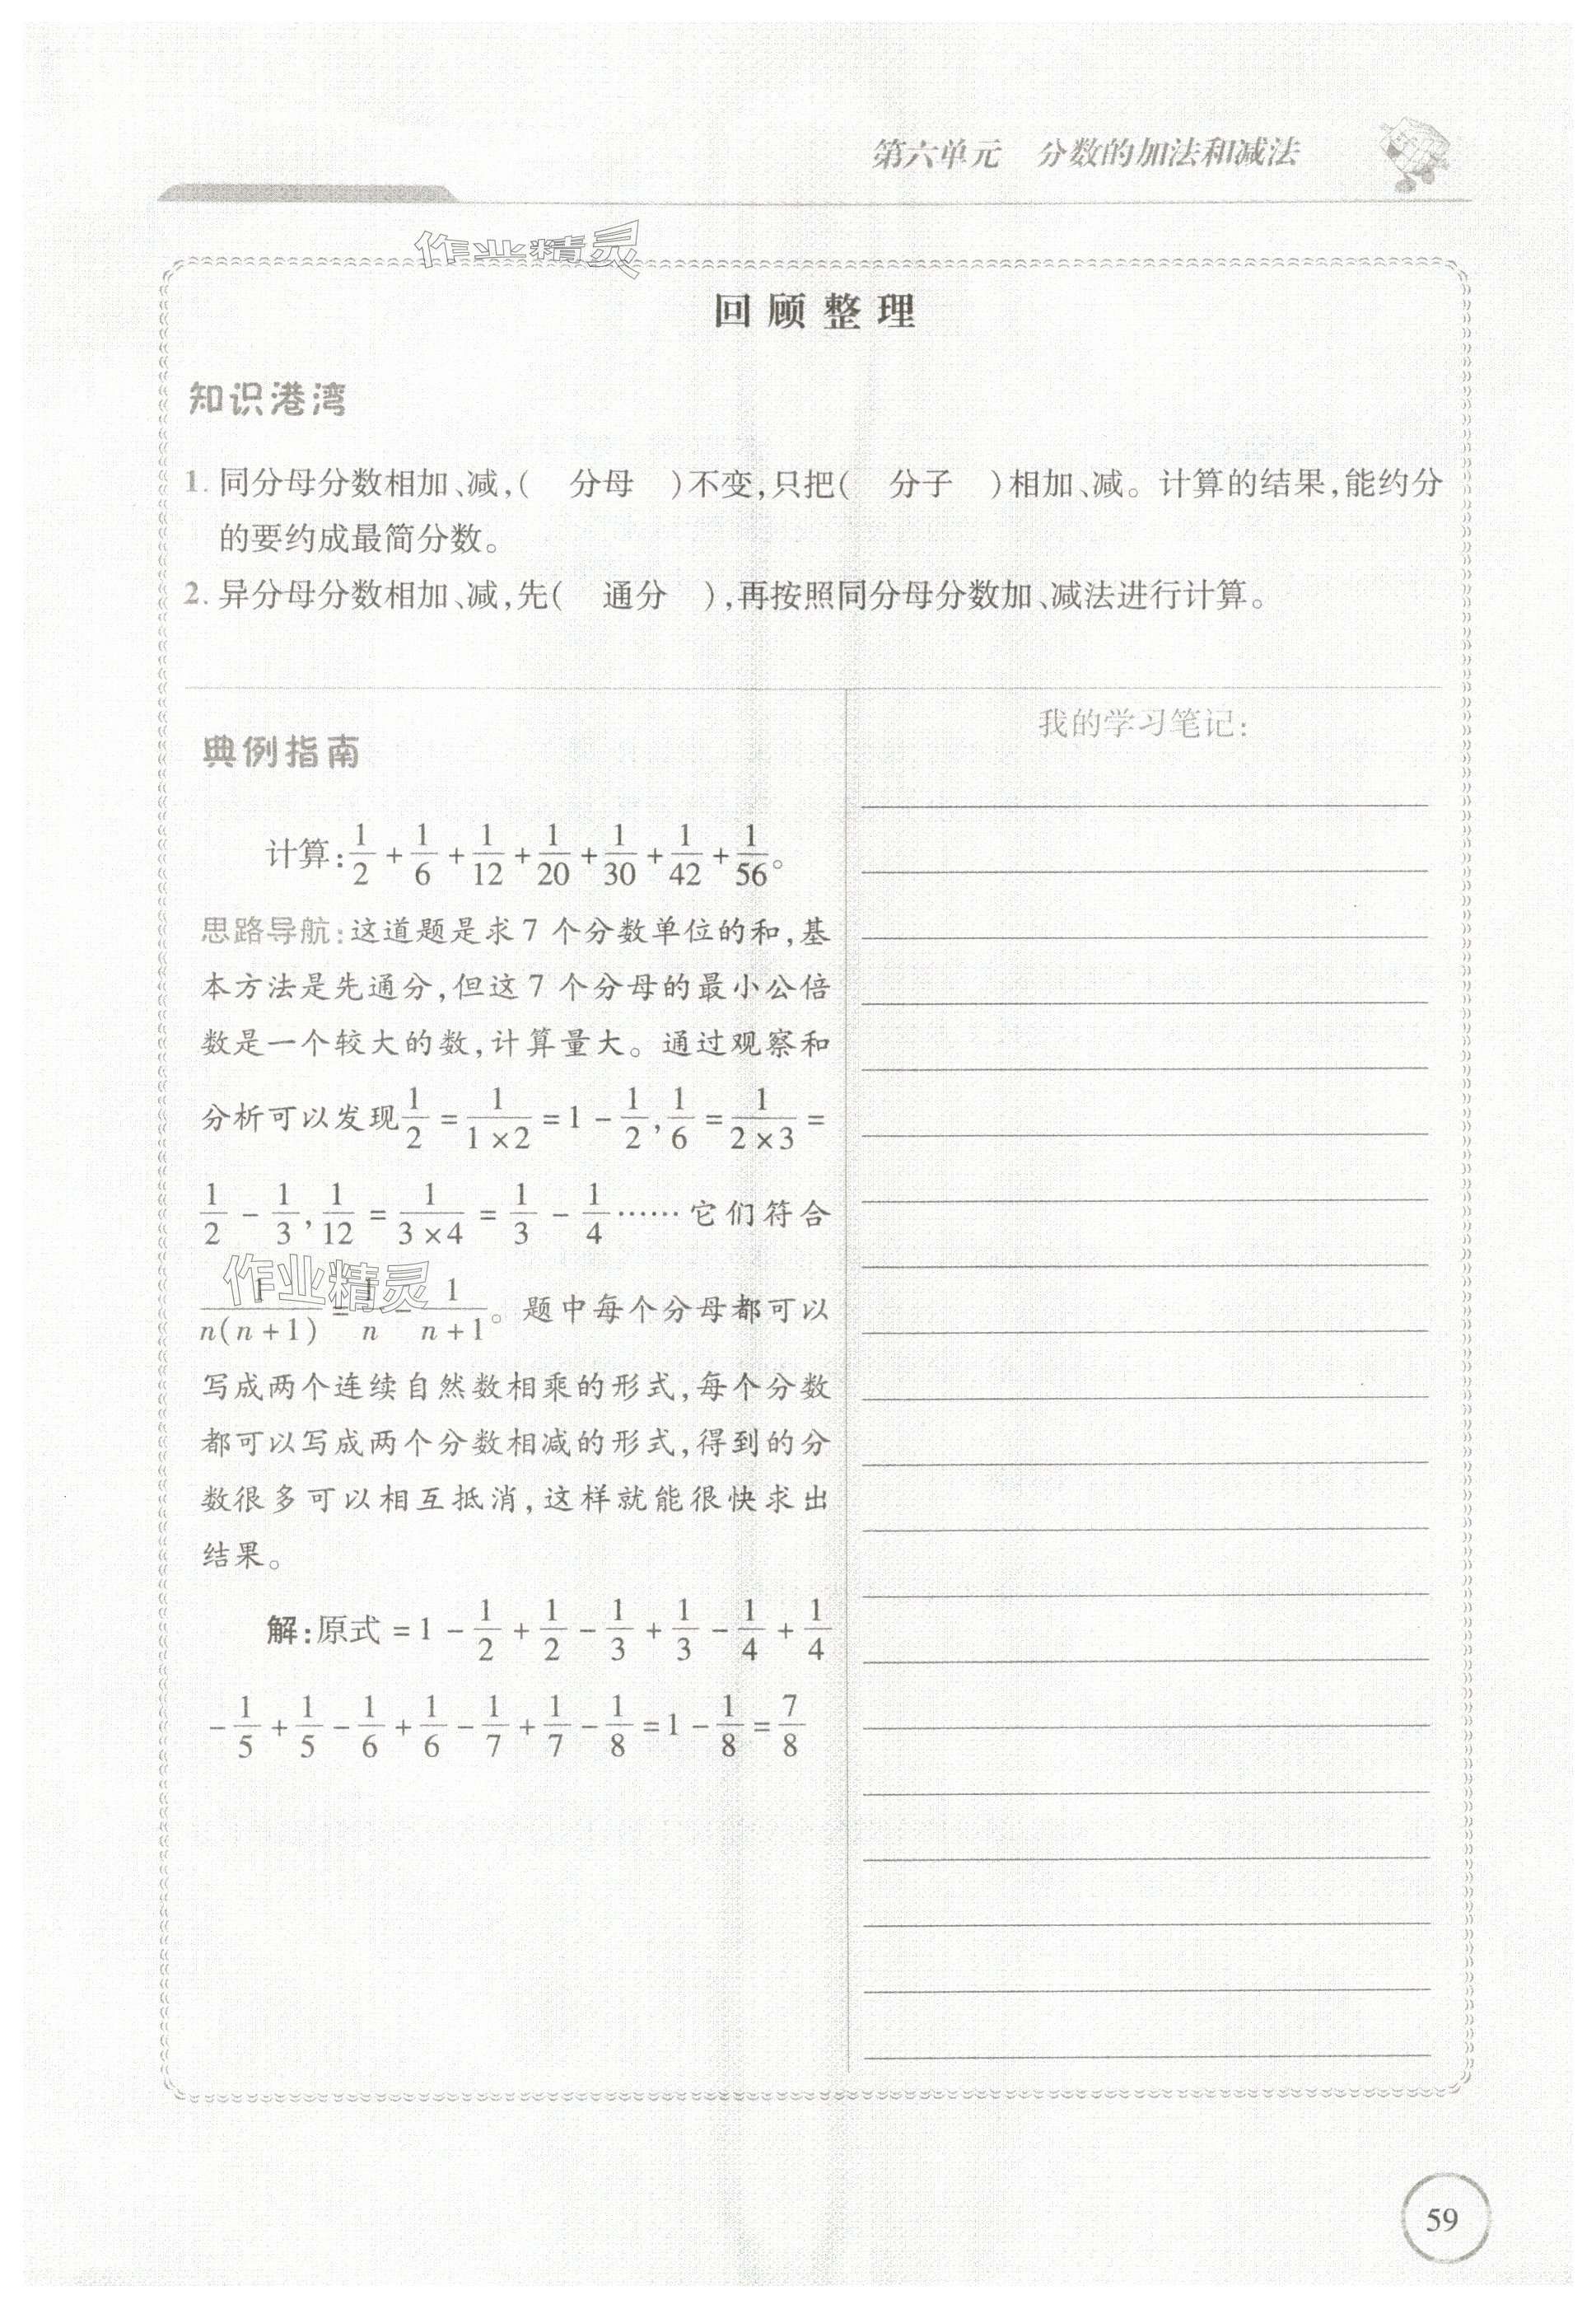 第六单元　分数的加法和减法
作业精灵
回顾整理
知识港湾
1. 同分母分数相加、减,(　分母　)不变,只把(　分子　)相加、减。计算的结果,能约分
的要约成最简分数。
2. 异分母分数相加、减,先(　通分　),再按照同分母分数加、减法进行计算。
典例指南
计算:1/2+1/6+1/12+1/20+1/30+1/42+1/56。
思路导航:这道题是求7个分数单位的和,基
本方法是先通分,但这7个分母的最小公倍
数是一个较大的数,计算量大。通过观察和
分析可以发现1/2=1/(1×2)=1-1/2,1/6=1/(2×3)=
1/2-1/3,1/12=1/(3×4)=1/3-1/4……它们符合
作业精灵
1/n(n+1)=1/n-1/(n+1)。题中每个分母都可以
写成两个连续自然数相乘的形式,每个分数
都可以写成两个分数相减的形式,得到的分
数很多可以相互抵消,这样就能很快求出
结果。
解:原式=1-1/2+1/2-1/3+1/3-1/4+1/4
-1/5+1/5-1/6+1/6-1/7+1/7-1/8=1-1/8=7/8
我的学习笔记:
59